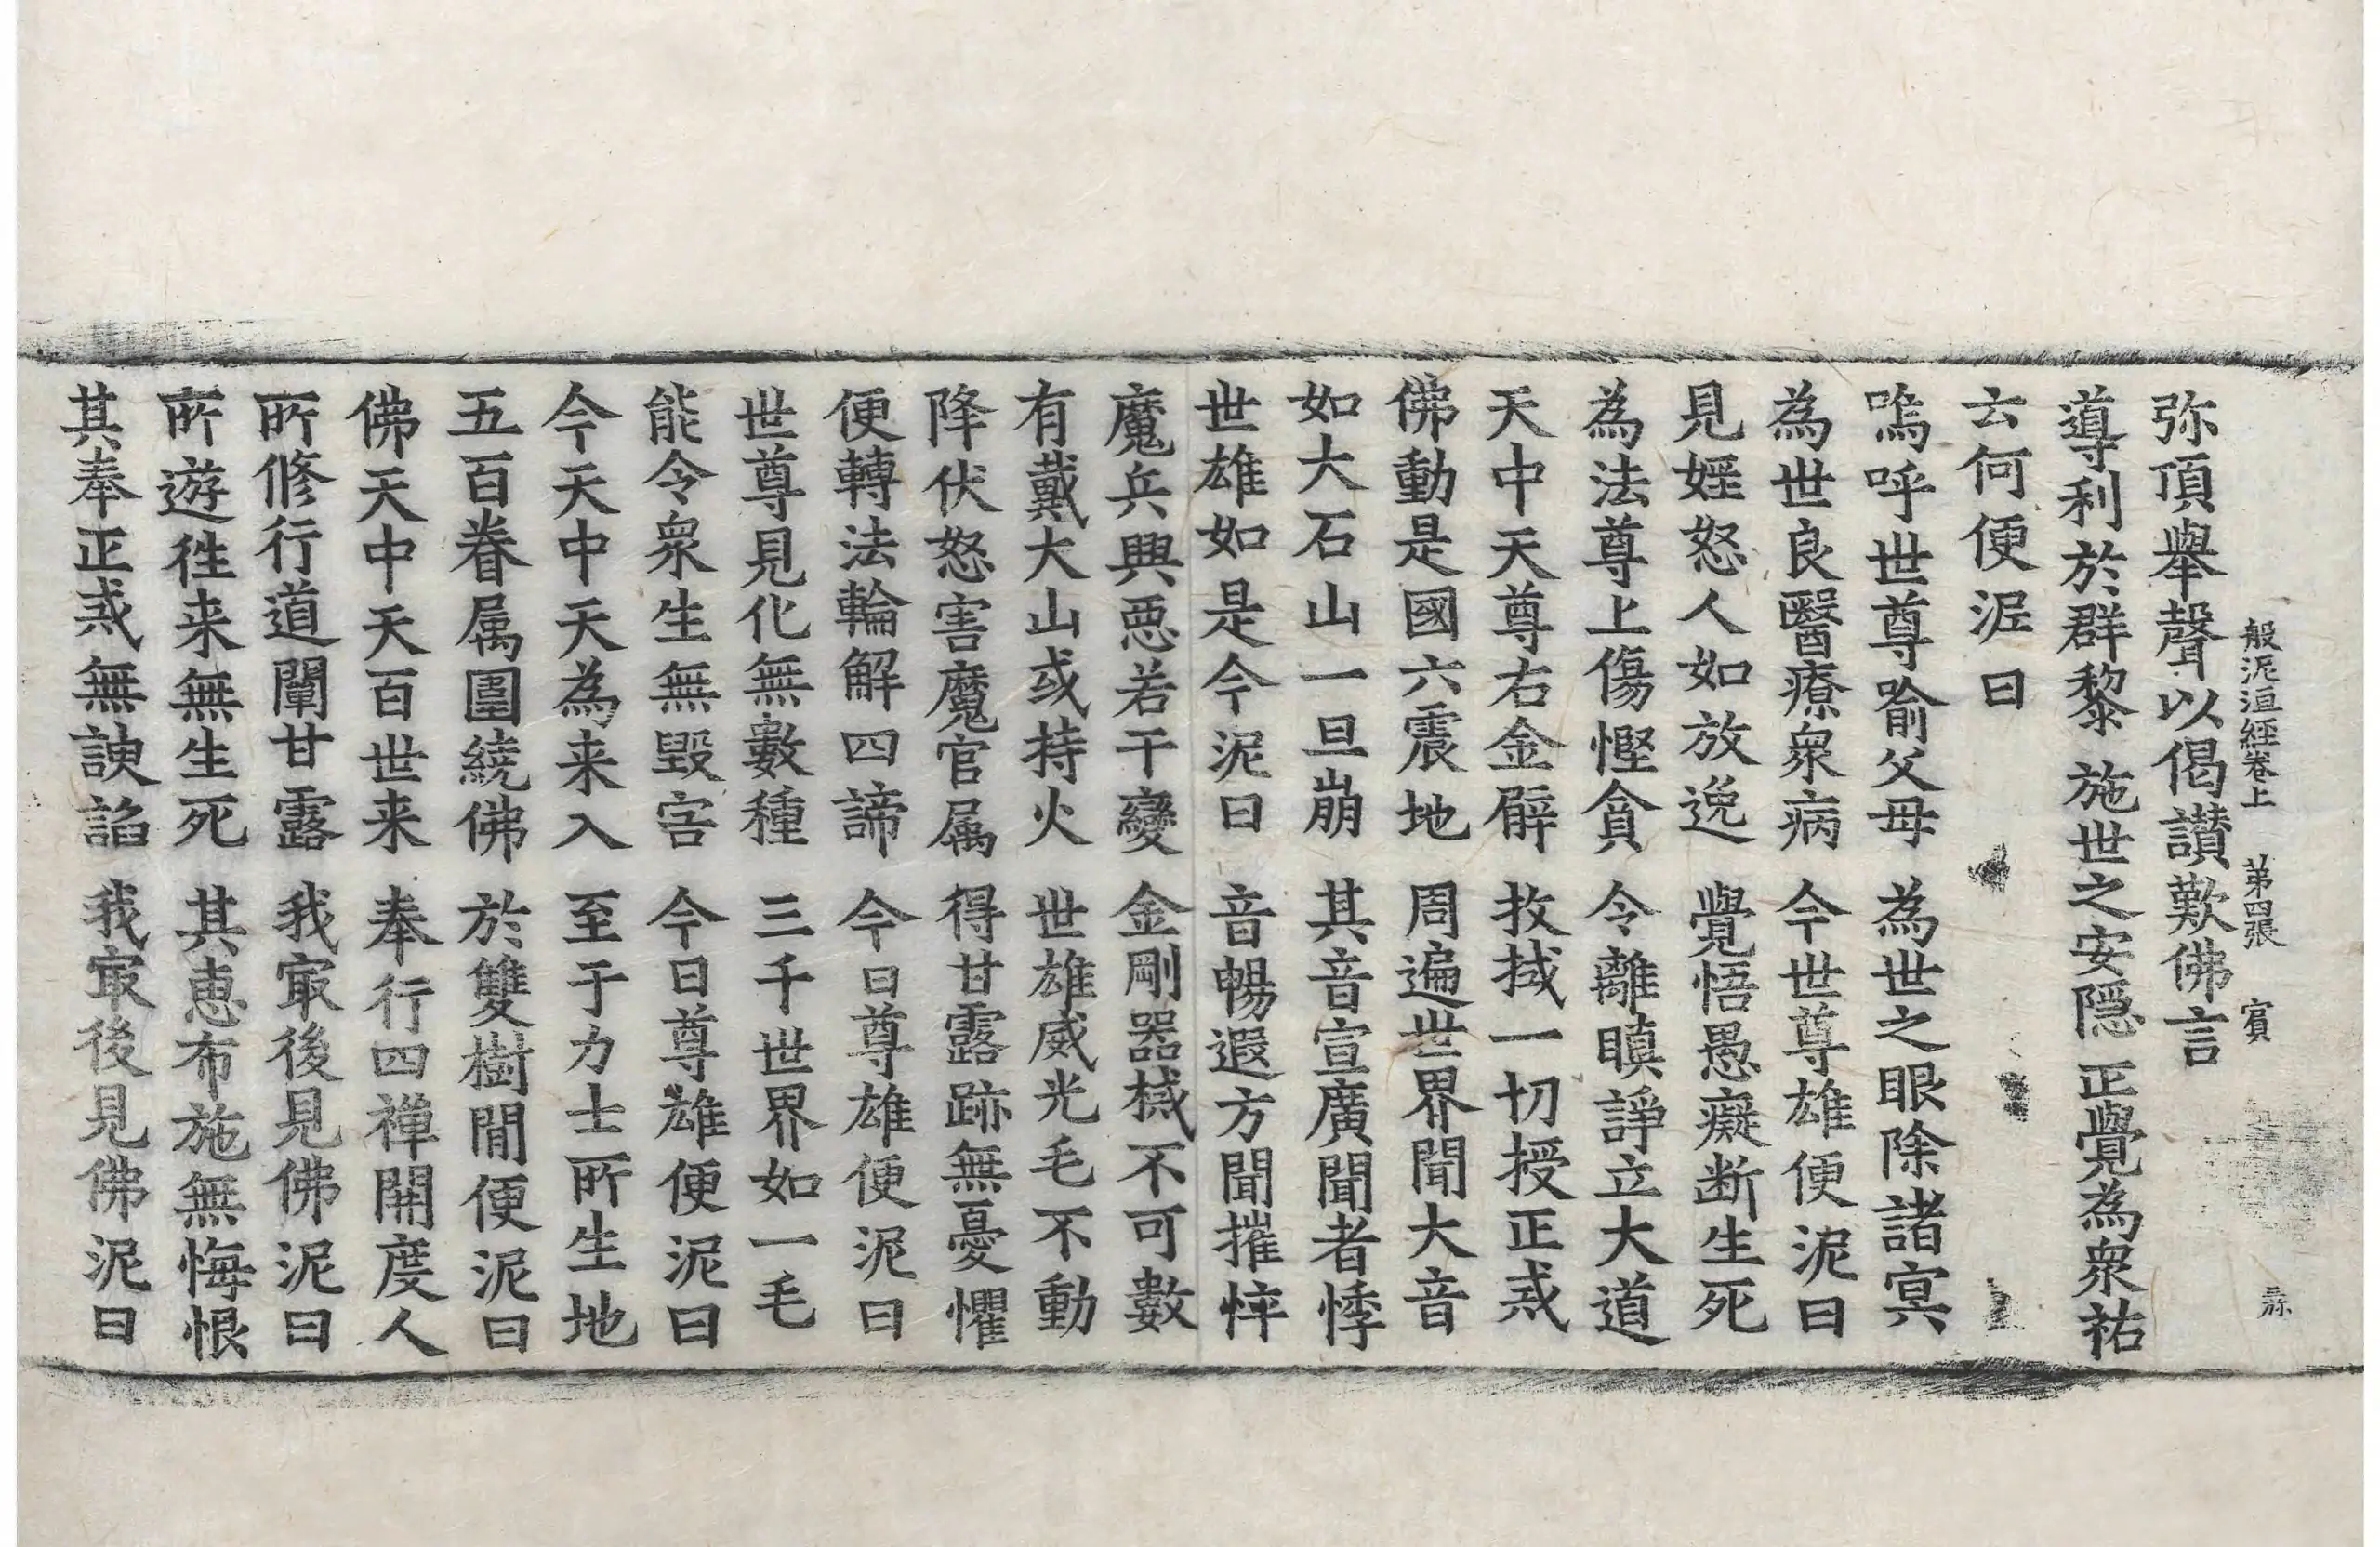 般泥洹經卷上 第四張 賓
弥頂舉聲以偈讃歎佛言
導利於群黎 施世之安隠 正覺為衆祐
云何便泥曰
嗚呼世尊喻父母 為世之眼除諸冥
為世良醫療衆病 今世尊雄便泥曰
見婬怒人如放逸 覺悟愚癡断生死
為法尊上傷慳貪 令離瞋諍立大道
天中天尊右金臂 抆拭一切授正戒
佛動是國六震地 周遍世界聞大音
如大石山一旦崩 其音宣廣聞者悸
世雄如是今泥曰 音暢遐方聞摧悴
魔兵興惡若干變 金剛器械不可數
有戴大山或持火 世雄威光毛不動
降伏怒害魔官属 得甘露跡無憂懼
便轉法輪解四諦 今日尊雄便泥曰
世尊見化無數種 三千世界如一毛
能令衆生無毀害 今日尊雄便泥曰
今天中天為来入 至于力士所生地
五百眷属圍繞佛 於雙樹間便泥曰
佛天中天百世来 奉行四禅開度人
所修行道闡甘露 我㝡後見佛泥曰
所遊徃来無生死 其恵布施無悔恨
其奉正戒無諛諂 我㝡後見佛泥曰